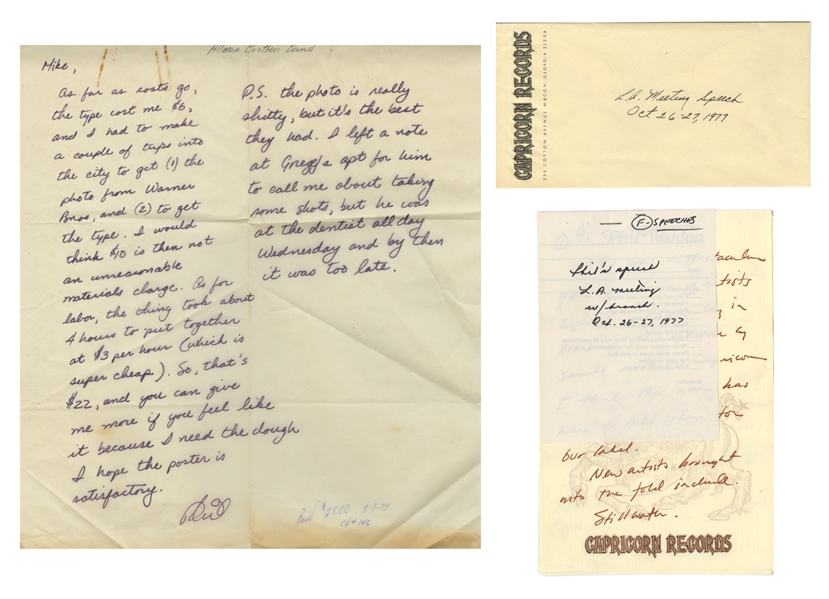 Allman Brothers Band
Mike,
As far as costs go,
the type cost me $6,
and I had to make
a couple of trips into
the city to get (1) the
photo from Warner
Bros, and (2) to get
the type. I would
think $10 is then not
an unreasonable
materials charge. As for
labor, the thing took about
4 hours to put together
at $3 per hour (which is
super cheap). So, that's
$22, and you can give
me more if you feel like
it because I need the dough
I hope the poster is
satisfactory.
P.S. the photo is really
shitty, but it's the best
they had. I left a note
at Gregg's apt for him
to call me about taking
some shots, but he was
at the dentist all day
Wednesday and by then
it was too late.
Paid $25.00 5-7-73
CAPRICORN RECORDS
535 COTTON AVENUE MACON, GEORGIA 31208
L.A. Meeting Speech
Oct 26-27, 1977
— (F-) SPEECHES
Phil Walden
Phil's speech
L.A. meeting
w/brass.
Oct. 26-27, 1977
in
by
has
our label.
New artists brought
into the fold include.
Stillwater.
CAPRICORN RECORDS